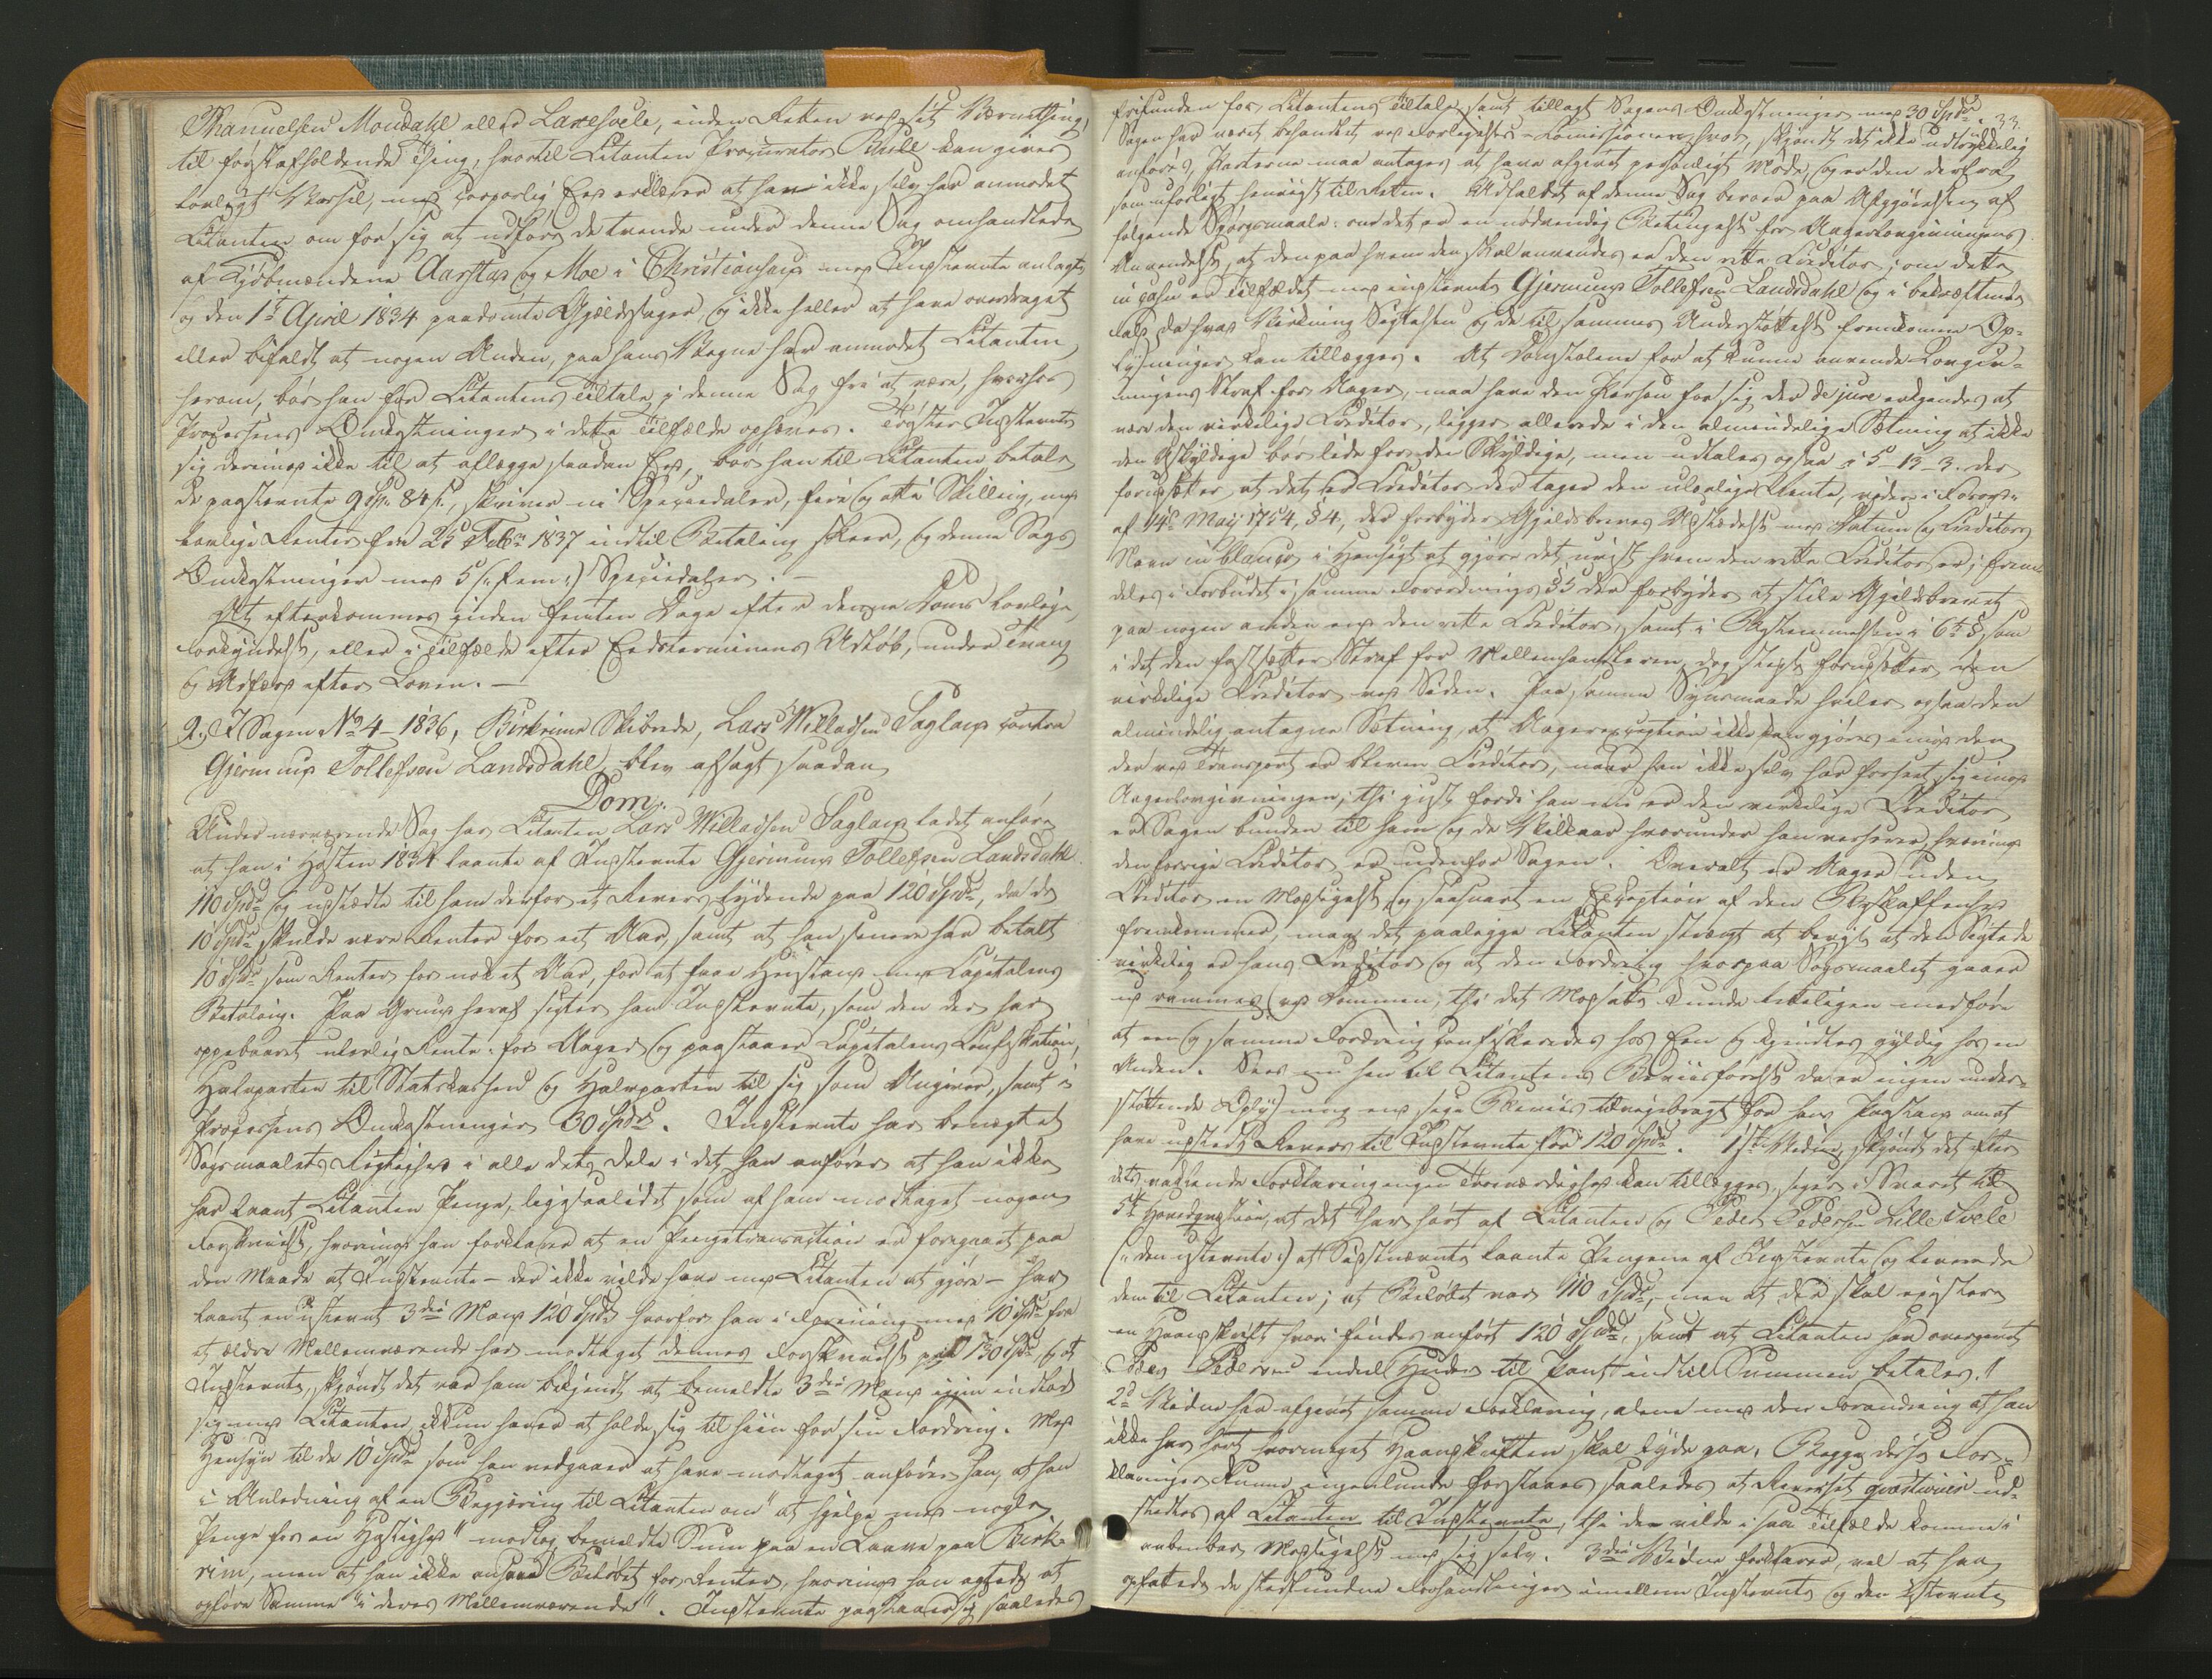 Thamuelsen Moudahl eller Lavesoele, inden Retten ved sit Værnething,
til förstafholdende Thing, hvortil Citanten Procurator Bull kan gives
lovligt Varsel, med corporlig Eed erklærer at han ikke selv har anmodet
Citanten om for sig at udföre de tvende under denne Sag omhandlede
af Kjöbmændene Aarstad og Moe i Christiansand mod Indstevnte anlagte
og den 1te April 1834 paadömte Gjældssager, og ikke heller at have overdraget
eller bifaldt at nogen Anden, paa hans Vegne har anmodet Citanten
herom, bör han for Citantens Tiltale i denne Sag fri at være, hvorhos
Processens Omkostninger i dette Tilfælde ophæves. Tröster Indstevnte
sig derimod ikke til at aflægge saadan Eed, bör han til Citanten betale
de paastevnte 9 Spd. 84 s., skriver ni Speciedaler, fire og otti Skilling, med
lovlige Renter fra 25 Febr. 1837 indtil Betaling skeer, og denne Sags
Omkostninger med 5 (: fem :) Speciedaler. –
At efterkommes inden femten Dage efter denne Doms lovlige
Forkyndelse, eller i Tilfælde efter Eedsterminens Udlöb, under Tvang
og Adfærd efter Loven. –
2, I Sagen No 4 – 1836, Birkrims Skibrede, Lars Willadsen Sagland contra
Gjermund Tollefsen Landsdahl, blev afsagt saadan
Dom.
Under nærværende Sag har Citanten Lars Willadsen Sagland ladet anföre
at han i Hösten 1834 laante af Indstevnte Gjermund Tollefsen Landsdahl
110 Spdr og udstædte til ham derfor et Revers lydende paa 120 Spdr, da de
10 Spdr skulde være Renter for eet Aar, samt at han senere har betalt
10 Spdr som Renter for nok et Aar, for at faae Henstand med Capitalens
Betaling. Paa Grund heraf sigter han Indstevnte, som den der har
oppebaaret ulovlig Rente: for Aager og paastaaer Capitalens Confiskation,
Halvparten til Statskassen og Halvparten til sig som Angiver, samt i
Processens Omkostninger 30 Spdr. Indstevnte har benægtet
Sögsmaalets Rigtighed i alle dets Dele i det han anförer at han ikke
har laant Citanten Penge, ligesaalidet som af ham modtaget nogen
Forskrivelse, hvorimod han forklarer at en Pengetransaction er foregaaet paa
den Maade at Indstevnte – der ikke vilde have med Citanten at gjöre – har
laant en ustevnt 3die Mand 120 Spdr hvorfor han i Forening med 10 Spdr fra
et ældre Mellemværende har modtaget dennes Forskrivelse paa 130 Spdr og at
Indstevnte, skjöndt det var ham bekjendt, at bemeldte 3die Mand igjen indlod
sig med Citanten, ikkun haver at holde sig til hiin for sin Fordring. Med
Hensyn til de 10 Spdr som han vedgaaer at have modtaget anförer han, at han
i Anledning af en Begjæring til Citanten om "at hjelpe med nogle
Penge for en Hastighed" modtog bemeldte Sum paa en Laane paa Birk-
rim, men at han ikke ansaae Belöbet for Renter, hvorimod han agtede at
opföre Samme "i deres Mellemværende". Indstevnte paastaaer sig saaledes
33.
frifunden for Citantens Tiltale samt tillagt Sagens Omkostninger med 30 Spdr.
Sagen har været behandlet ved Forligelses-Comissionen hvor, skjöndt det ikke udtrykkelig
anföres, Parterne maa antages at have afgivet personligt Möde, og er den derfra
som uforligt henviist til Retten. Udfaldet af denne Sag beroer paa Afgjörelsen af
fölgende Spörgsmaale: om det er en nödvendig Betingelse for Aagerlovgivningens
Anvendelse, at den paa hvem den skal anvendes er den rette Creditor; om dette
in casu er Tilfældet med indstevnte Gjermund Tollefsen Landsdahl og i bekræftende
Fald da hvad Virkning Sigtelsen og de til sammes Understöttelse fremkomne Op-
lysninger kan tillægges. At Domstolene for at kunne anvende Lovgiv-
ningens Straf for Aager, maa have den Person for sig der de jure erkjendes at
være den virkelige Creditor, ligger allerede i den almindelige Sætning at ikke
den Uskyldige bör lide for den Skyldige, men udtales ogsaa i 5–13–3. der
forudsætter at det er Creditor der tager den ulovlige Rente, videre i Forord.
af 14de May 1754, § 4, der forbyder Gjeldsbreves Udstædelse med Datum og Creditors
Navn in blanco i Hensigt at gjöre det uvist hvem den rette Creditor er; frem-
deles i Forbudet i samme Forordnings § 5 der forbyder at stile Gjeldsbrevet
paa nogen anden end den rette Creditor, samt i Bestemmelsen i 6te §, som
i det den fastsætter Straf for Mellemhandleren, dog stedse forudsætter den
virkelige Creditor ved Siden. Paa samme Synsmaade hviler ogsaa den
almindelig antagne Sætning, at Aagerexception ikke kan gjöres imod den
der ved Transport er bleven Creditor, naar han ikke selv har forseet sig imod
Aagerlovgivningen; thi just fordi han nu er den virkelige Creditor
er Sagen bunden til ham og de Vilkaar hvorunder han verserer, hvorimod
den forrige Creditor er udenfor Sagen. Overalt er Aager uden
Creditor en Modsigelse, og saasnart en Exception af den Beskaffenhed
fremkommer, maa det paaligge Citanten strængt at beviise at den Sigtede
virkelig er hans Creditor og at den Fordring hvorpaa Sögsmaalet gaaer
ud rammes ved Dommen; thi det Modsatte kunde letteligen medföre
at een og samme Fordring confiskeredes hos Een og kjendtes gyldig hos en
Anden. Sees nu hen til Citantens Beviisförelse da er ingen under-
stöttende Oplysning end sige Beviis tilveiebragt for hans Paastand om at
have udstedt Revers til Indstevnte for 120 Spdr. 1ste Vidne, skjöndt det efter
dets vaklende Forklaring ingen Troværdighed kan tillægges, siger i Svaret til
5te Hovedqvæstion, at det "har hört af Citanten og Peder Pedersen Lille Svele
(: den ustevnte :) at Sidstnævnte laante Pengene af Indstevnte og leverede
dem til Citanten; at Belöbet var 110 Spdr, men at der skal existere
en Haandskrift hvori findes anfört 120 Spdr, samt at Citanten har overgivet
Peder Pedersen endeel Huder til Pant indtil Summen betales."
2d Vidne har afgivet samme Forklaring, alene med den Forandring at han
ikke har hört hvormeget Haandskriften skal lyde paa. Begge disse For-
klaringer kunne ingenlunde forstaaes saaledes at Reverset qvæstionis ud-
stedtes af Citanten til Indstevnte, thi den vilde i saa Tilfælde komme i
aabenbar Modsigelse med sig selv. 3die Vidne forklarer, vel at han
opfattede de stedfundne Forhandlinger imellem Indstevnte og den Ustevnte